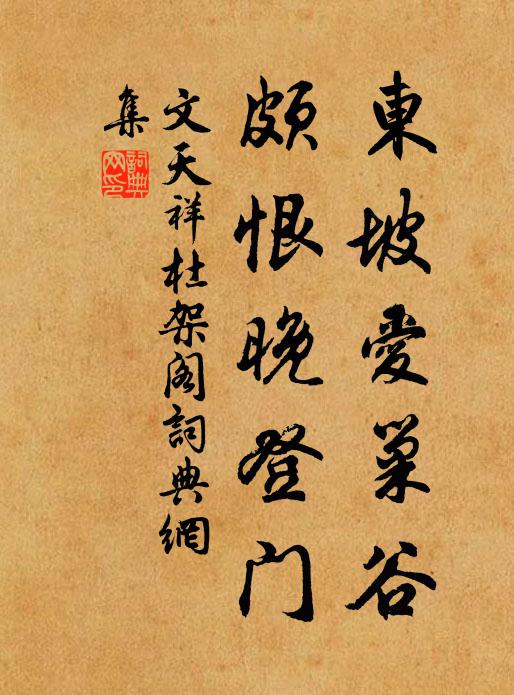 東坡愛巢谷
頗恨晚登门
文天祥杜架阁詞典網
集
詞典网印